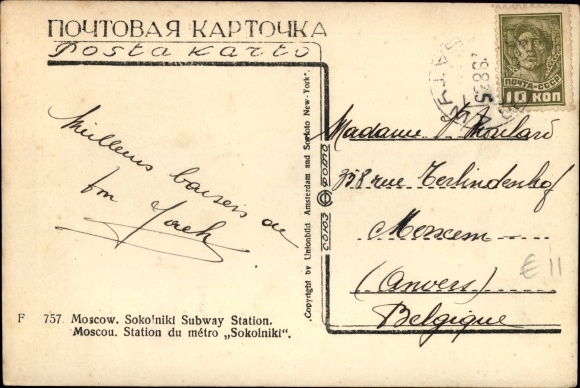 ПОЧТОВАЯ КАРТОЧКА
Posta karto
ПОЧТА-СССР
10 КОП
Meilleurs baisers de
ton Jack
Copyright by Unionbild Amsterdam and Serfoto New-York.
СОЮЗ ФОТО
Madame
358 rue Terlindenhof
Merxem
(Anvers)
Belgique
€ 11
F 757. Moscow. Sokolniki Subway Station.
Moscou. Station du métro „Sokolniki“.